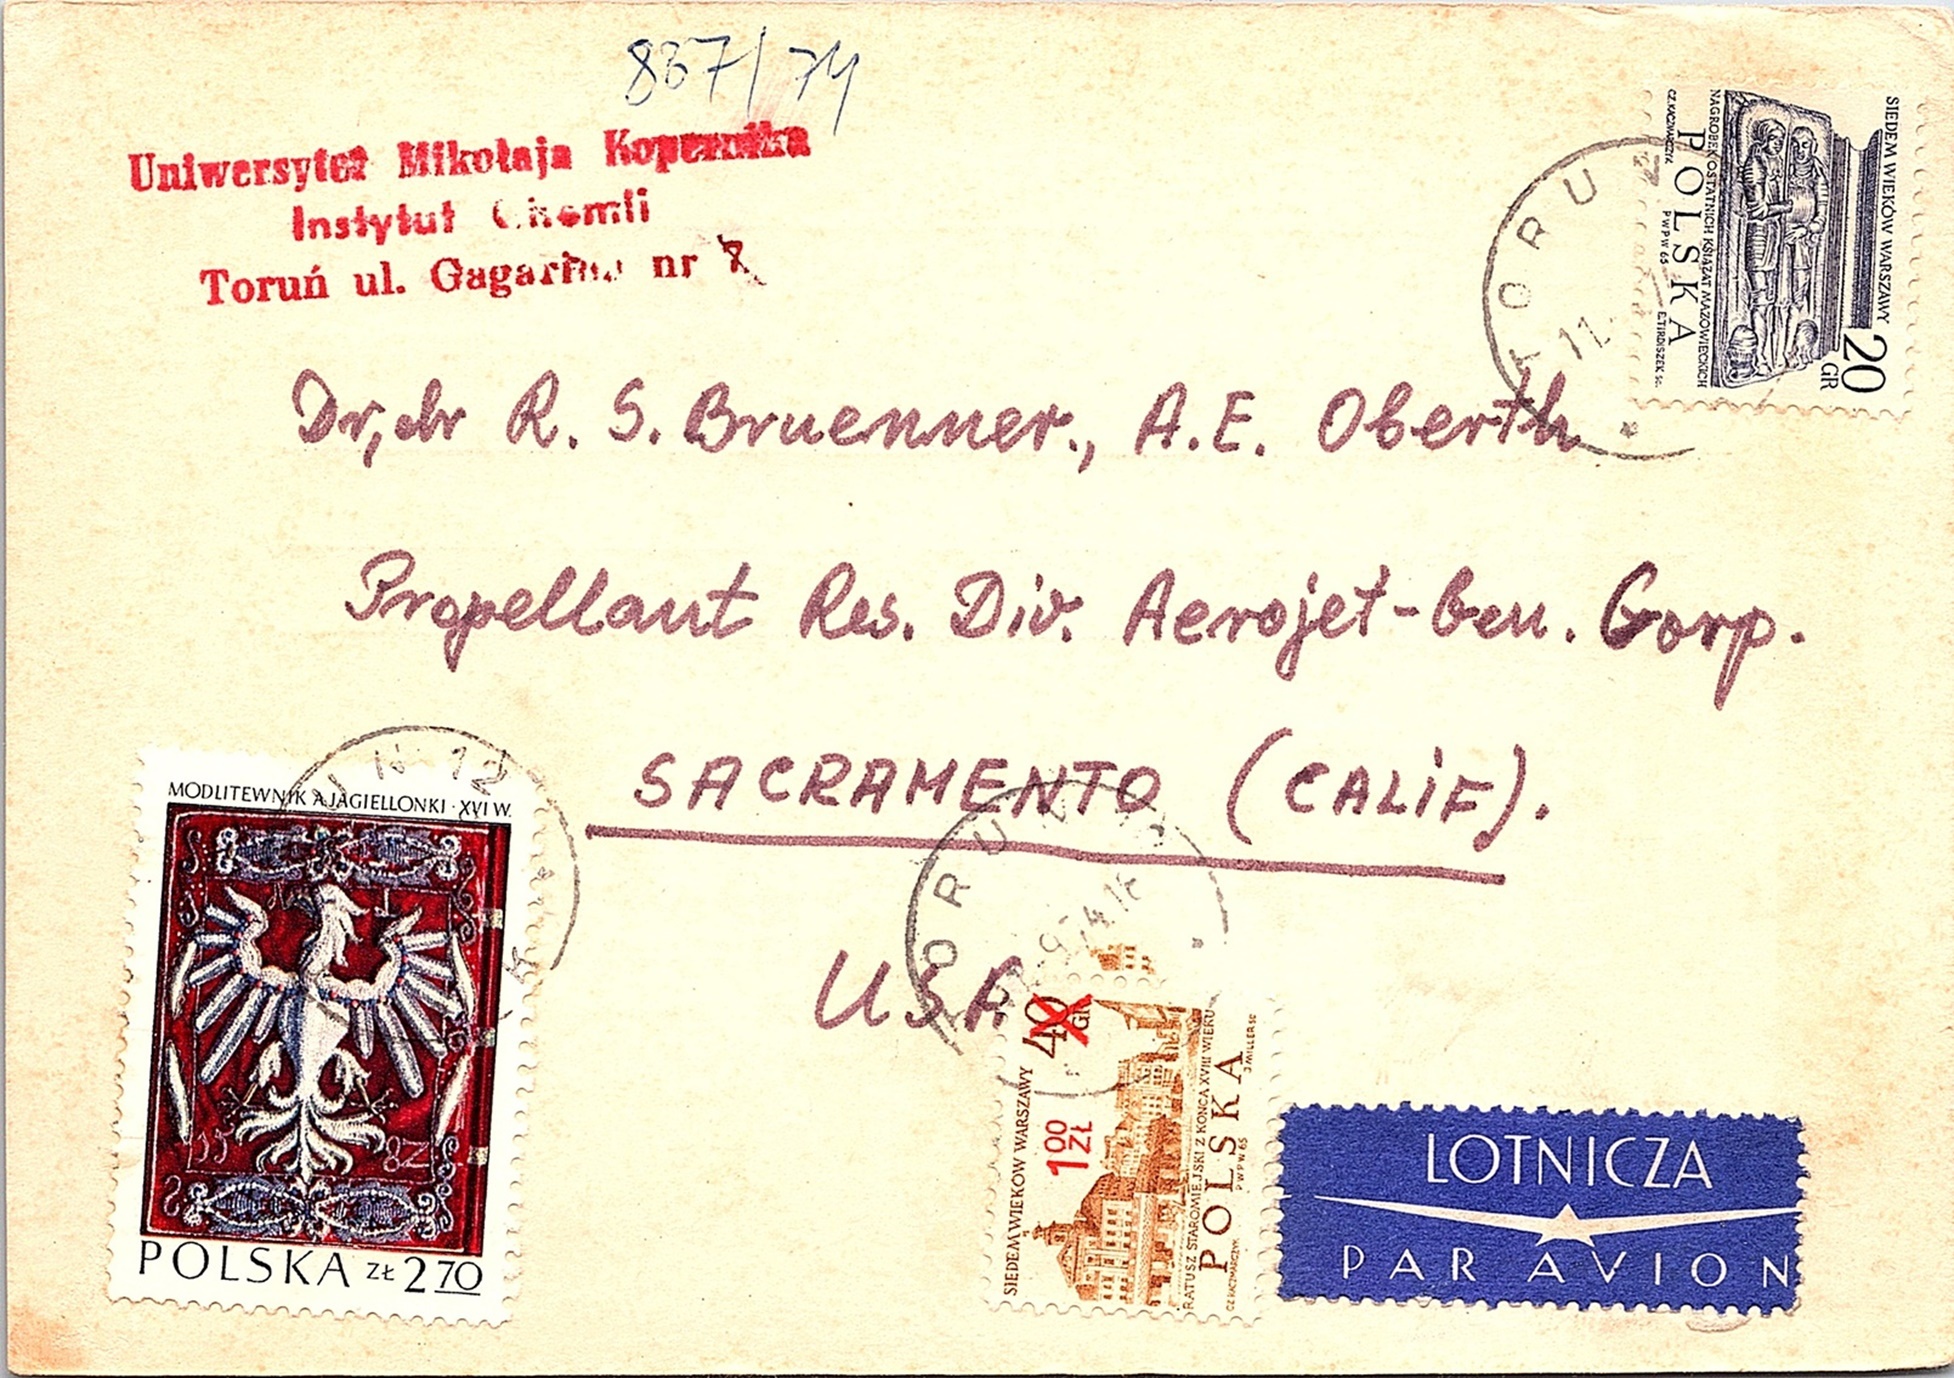 837/74
Uniwersytet Mikołaja Kopernika
Instytut Chemii
Toruń ul. Gagarina nr 7
SIEDEM WIEKÓW WARSZAWY
20 GR
NAGROBEK OSTATNICH KSIĄŻĄT MAZOWIECKICH
POLSKA
CZ. KACZMARCZYK PWPW 65 E. TIRDISZEK SC.
TORUŃ
Dr, dr R. S. Bruenner., A.E. Oberth
Propellant Res. Div. Aerojet-Gen. Corp.
SACRAMENTO (CALiF).
USA
MODLITEWNIK A JAGIELLONKI · XVI W.
15 82
POLSKA ZŁ 270
TORUŃ
SIEDEM WIEKÓW WARSZAWY 40 GR
100 ZŁ
RATUSZ STAROMIEJSKI Z KOŃCA XVIII WIEKU
POLSKA
CZ. KACZMARCZYK PWPW 65 J. MILLER SC
LOTNICZA
PAR AVION